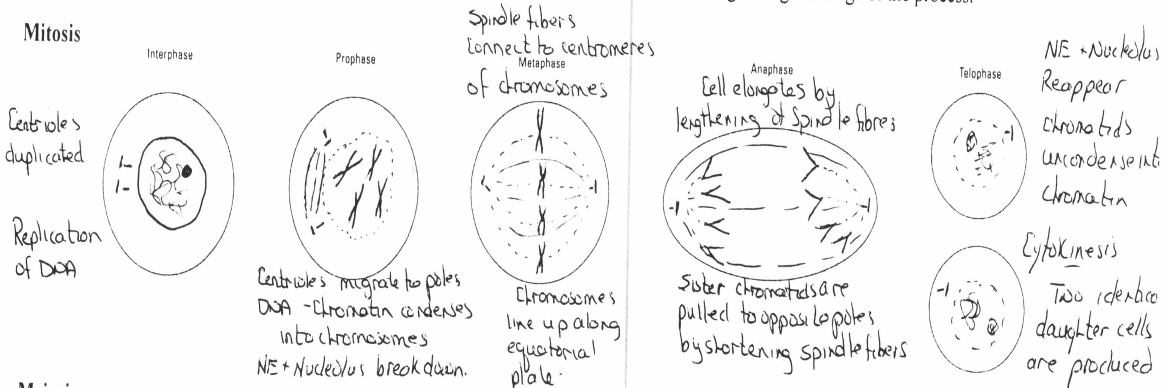 Mitosis
Interphase
Centrioles
duplicated
Replication
of DNA
Prophase
Centrioles migrate to poles
DNA - Chromatin condenses
into chromosomes
NE + Nucleolus break down.
Spindle fibers
Connect to centromeres
Metaphase
of chromosomes
Chromosomes
line up along
equatorial
plate.
Anaphase
Cell elongates by
lengthening of spindle fibres
Sister chromatids are
pulled to opposite poles
by shortening spindle fibers
Telophase
NE + Nucleolus
Reappear
Chromatids
uncondense int
chromatin
Cytokinesis
Two identica
daughter cells
are produced